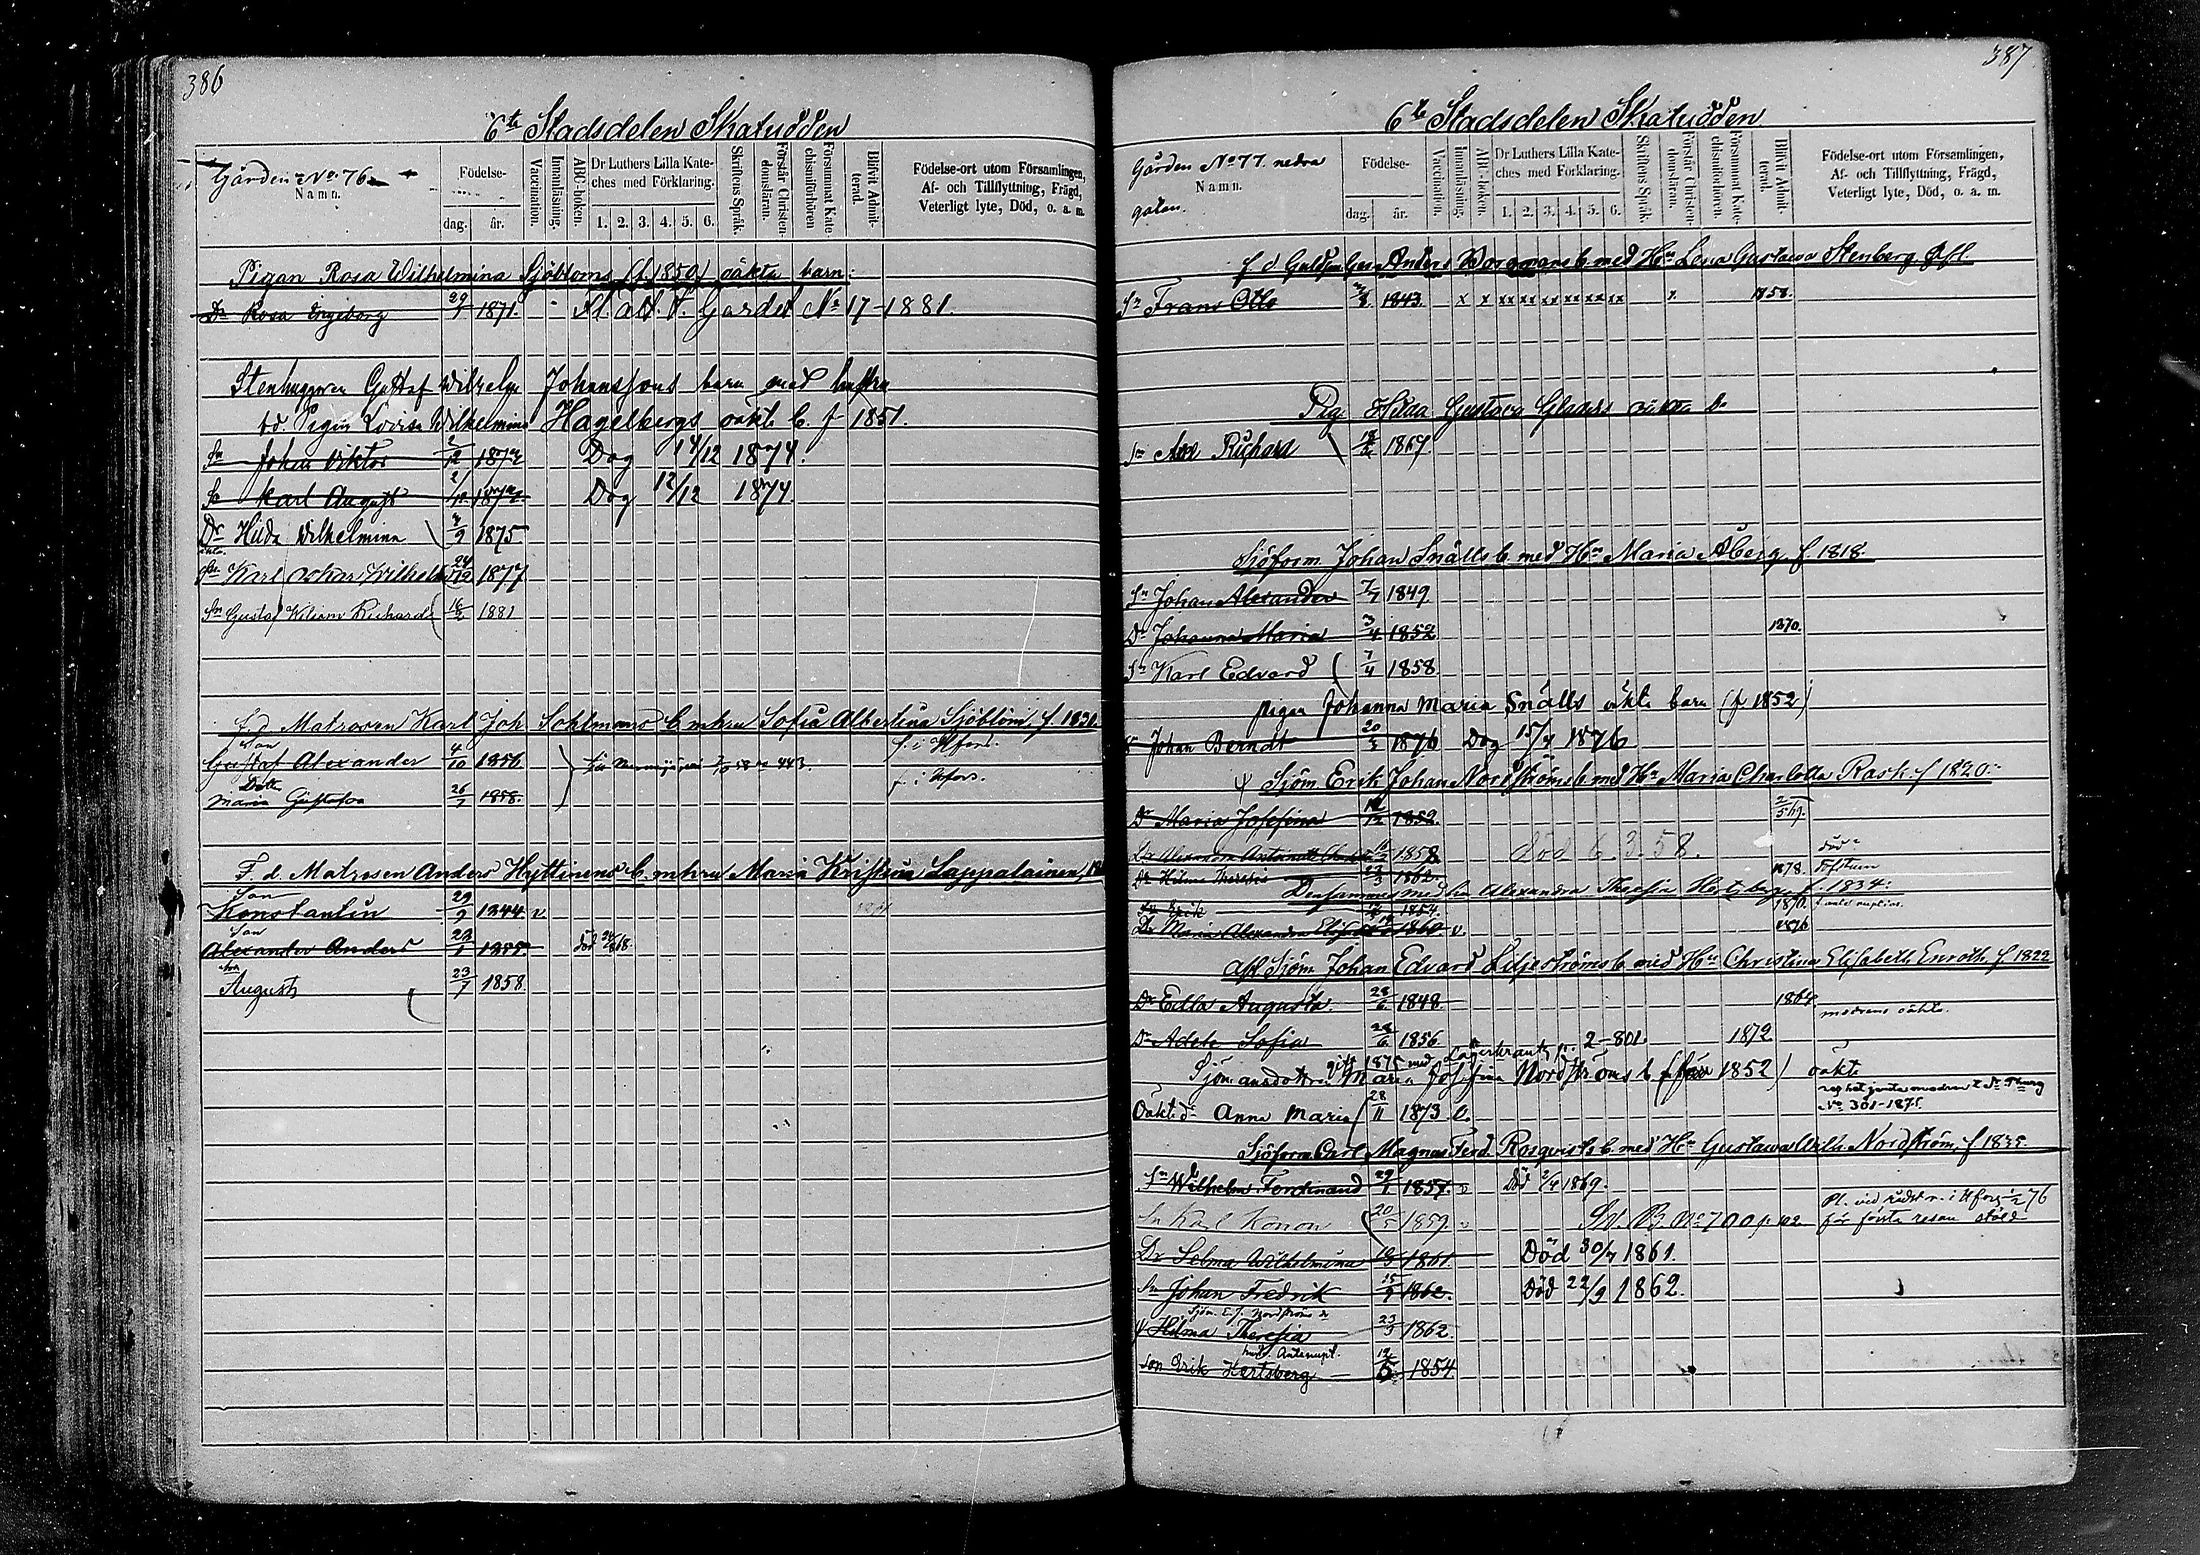 386
6te Stadsdelen Skatudden
Gården No 76
Namn.
Födelse-
dag. år.
Vaccination.
Innanläsning.
ABC-boken.
Dr Luthers Lilla Kate-
ches med Förklaring.
1. 2. 3. 4. 5. 6.
Skriftens Språk.
Förstår Christen-
domsläran.
Försummat Kate-
chismiförhören
Blifvit Admit-
terad.
Födelse-ort utom Församlingen,
Af- och Tillflyttning, Frägd,
Veterligt lyte, Död, o. a. m.
Pigan Rosa Wilhelmina Sjöbloms (f. 1850) oäkta barn:
Dr Rosa Ingeborg 29/7 1871. Gardet No 17-1881.
Stenhuggaren Gustaf Wilhelm Johanssons barn med hustru
Pigan Lovisa Wilhelmina Hagelbergs oäkta b. f 1851.
Sn Johan Viktor 2/12 1874 Dog 14/12 1874.
Sn Karl August 2/12 1874 Dog 12/12 1874
Dr Hilda Wilhelmina 1875
Sn Karl Oskar Wilhelm 24/12 1877
Sn Gustaf Wiliam Richard 16/2 1881
f.d. Matrosen Karl Joh Sohlmans b. m hru Sofia Albertina Sjöblom, f 1831
Son
Gustaf Alexander 4/10 1856 443. f. i Hfors.
Dotter
Maria Gustafva 26/7 1858. f. i Hfors.
F. d. Matrosen Anders Hyttinens b. m hru Maria Kristina Lappalainen,
Son
Konstantin 29/9 1844 v.
Son
Alexander Anders 22/1 1855. död
Son
August 23/7 1858.
387
6te Stadsdelen Skatudden
Gården No 77. nedra
Namn.
gatan.
Födelse-
dag. år.
Vaccination.
Innanläsning.
ABC-boken.
Dr Luthers Lilla Kate-
ches med Förklaring.
1. 2. 3. 4. 5. 6.
Skriftens Språk.
Förstår Christen-
domsläran.
Försummat Kate-
chismiförhören.
Blifvit Admit-
terad.
Födelse-ort utom Församlingen,
Af- och Tillflyttning, Frägd,
Veterligt lyte, Död, o. a. m.
f d Anders b. med Hu Lena Gustava Stenberg
Sn Frans Otto 1843. x x xx xx xx xx xx xx x. 1858.
Pig Hilda Gustava b.
Sn Axel Richard 1867.
Sjöform. Johan Snälls b. med Hu Maria Åberg f. 1818.
Sn Johan Alexander 7/7 1849
Dr Johanna Maria 3/4 1852 1870.
Sn Karl Edvard 7/4 1858
pigan Johanna Maria Snälls oäkta barn (f 1852)
Johan Berndt 20/3 1876 Dog 15/7 1876
Sjöm Erik Johan Nordströms b. med Hu Maria Charlotta Rask f 1820.
Dr Maria Josefina 1852.
Dr Alexandra 1858 död 6.3.58. död
Dr Hilma Theresia 23/3 1862. 1878.
Densammes med hu Alexandra Theresia Hertsberg f. 1834:
Sn Erik 1854. 1870.
Dr Maria Alexandra 1860. v 1876
Afl Sjöm Johan Edvard Liljeströms b. med Hu Christina Elisabeth Enroth f 1822
Dr Edla Augusta 28/6 1848 1864 modrens oäkta.
Dr Adele Sofia 28/6 1856 2-801. 1872
gift 1875 med
Maria Josefina Nordströms b. 1852) oäkta
Oäkt dr Anna Maria 28/11 1873 No 301-1875.
Sjöform Carl Magnus Ferd. Rosqvists b. med Hu Gustava Nordström, f 1835
Sn Wilhelm Ferdinand 29/1 1857. Död 1869.
Sn Karl Konon 20/5 1859. No 700 p. 102 för första resan stöld
Dr Selma Wilhelmina 1861 Död 30/7 1861.
Sn Johan Fredrik 15/9 1862. Död 22/9 1862.
Sjöm. E. J. Nordströms dr
Hilma Theresia 23/3 1862
Son Erik Hertsberg 12/5 1854